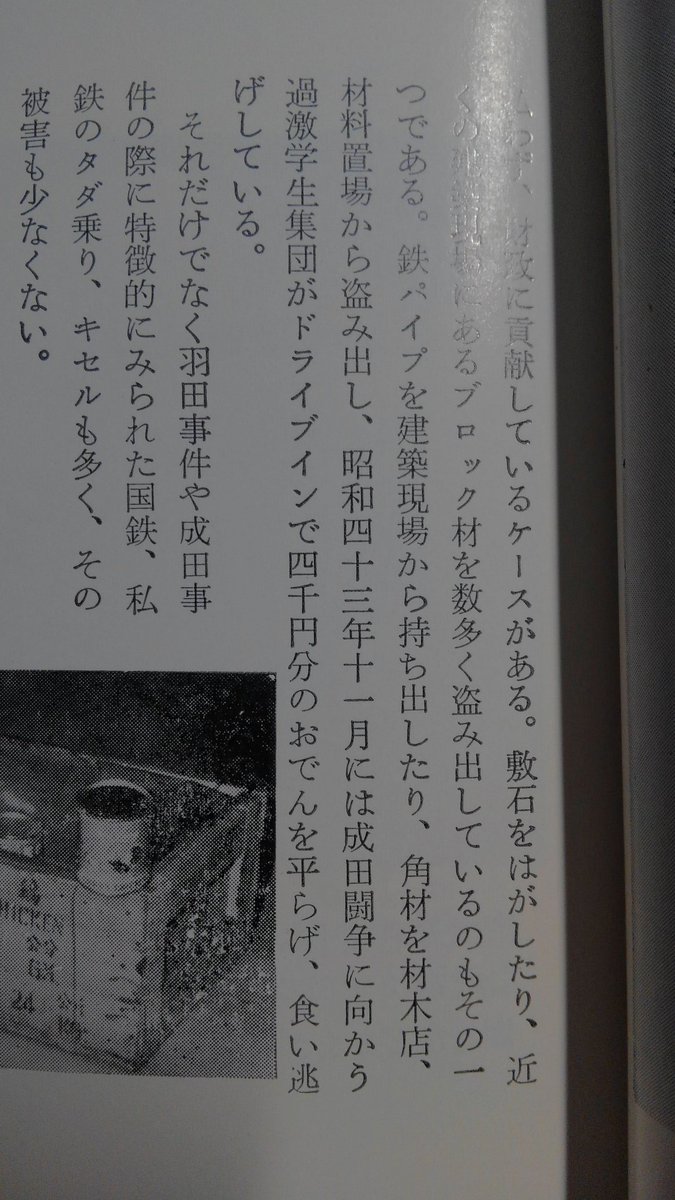 わず、財政に貢献しているケースがある。敷石をはがしたり、近
くの建築現場にあるブロック材を数多く盗み出しているのもその一
つである。鉄パイプを建築現場から持ち出したり、角材を材木店、
材料置場から盗み出し、昭和四十三年十一月には成田闘争に向かう
過激学生集団がドライブインで四千円分のおでんを平らげ、食い逃
げしている。
それだけでなく羽田事件や成田事
件の際に特徴的にみられた国鉄、私
鉄のタダ乗り、キセルも多く、その
被害も少なくない。
HICKEN
24